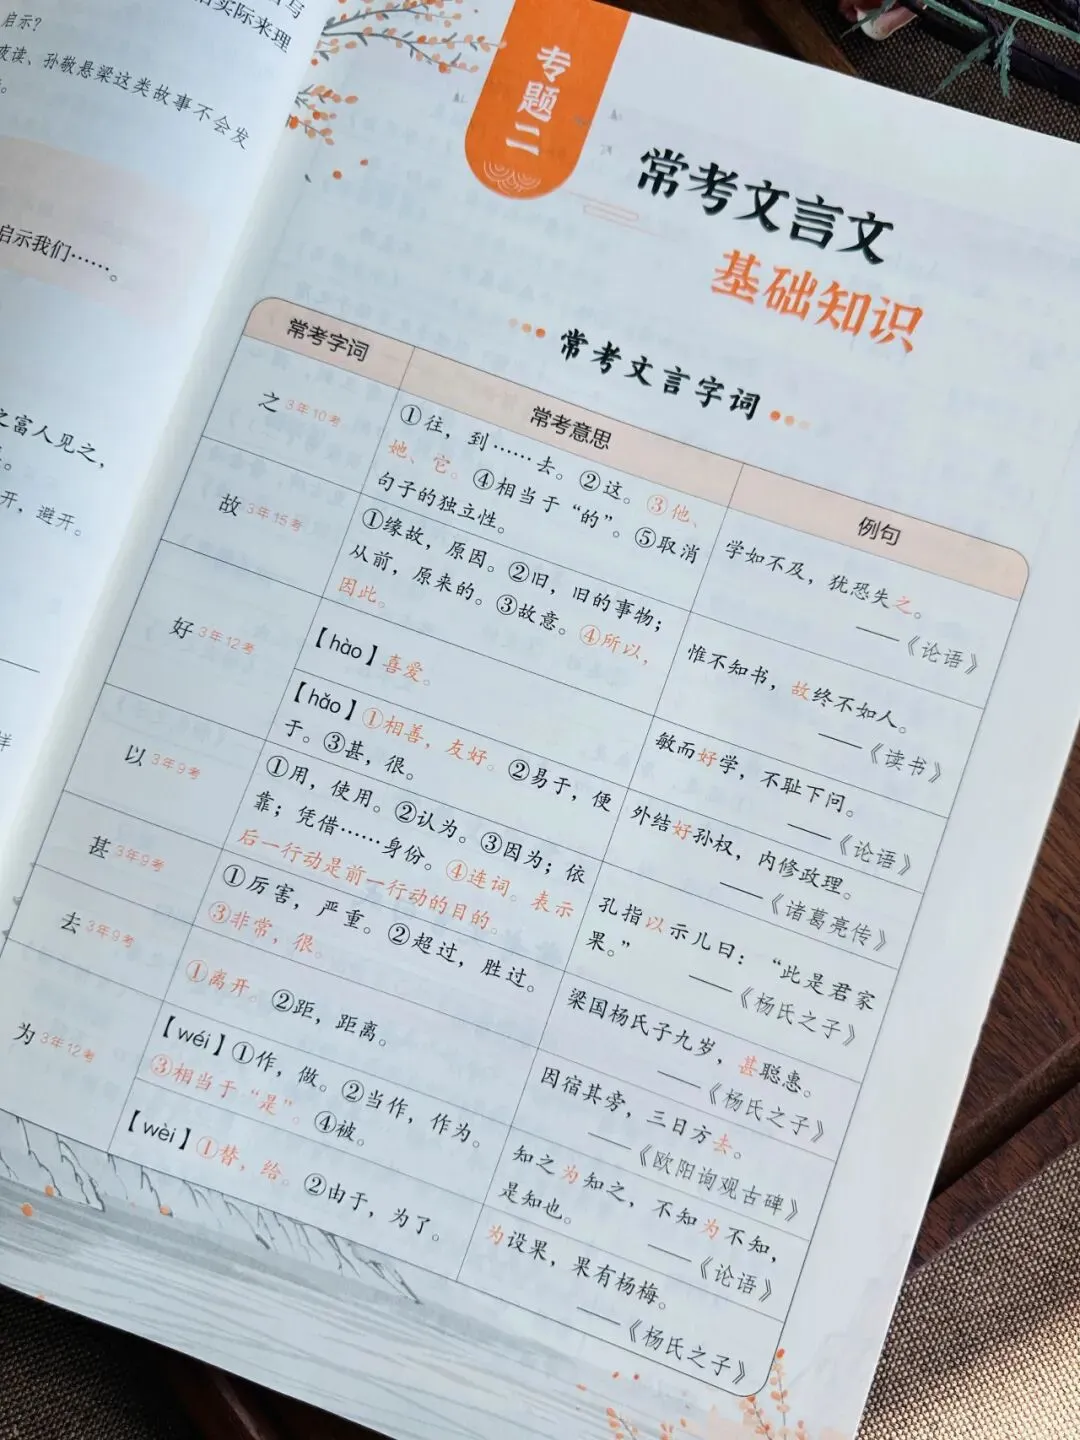 写
实际来理
启示？
夜读、孙敬悬梁这类故事不会发
启示我们……。
之富人见之，
开，避开。
样
专题二
常考文言文
基础知识
常考文言字词
常考字词
常考意思
例句
之 3年10考
①往，到……去。②这。③他、
她、它。④相当于“的”。⑤取消
句子的独立性。
学如不及，犹恐失之。
——《论语》
故 3年15考
①缘故，原因。②旧，旧的事物；
从前，原来的。③故意。④所以，
因此。
惟不知书，故终不如人。
——《读书》
好 3年12考
【hào】喜爱。
敏而好学，不耻下问。
——《论语》
【hǎo】①相善，友好。②易于，便
于。③甚，很。
外结好孙权，内修政理。
——《诸葛亮传》
以 3年9考
①用，使用。②认为。③因为；依
靠；凭借……身份。④连词。表示
后一行动是前一行动的目的。
孔指以示儿曰：“此是君家
果。”
——《杨氏之子》
甚 3年9考
①厉害，严重。②超过，胜过。
③非常，很。
梁国杨氏子九岁，甚聪惠。
——《杨氏之子》
去 3年9考
①离开。②距，距离。
因宿其旁，三日方去。
——《欧阳询观古碑》
为 3年12考
【wéi】①作，做。②当作，作为。
③相当于“是”。④被。
知之为知之，不知为不知，
是知也。
——《论语》
【wèi】①替，给。②由于，为了。
为设果，果有杨梅。
——《杨氏之子》